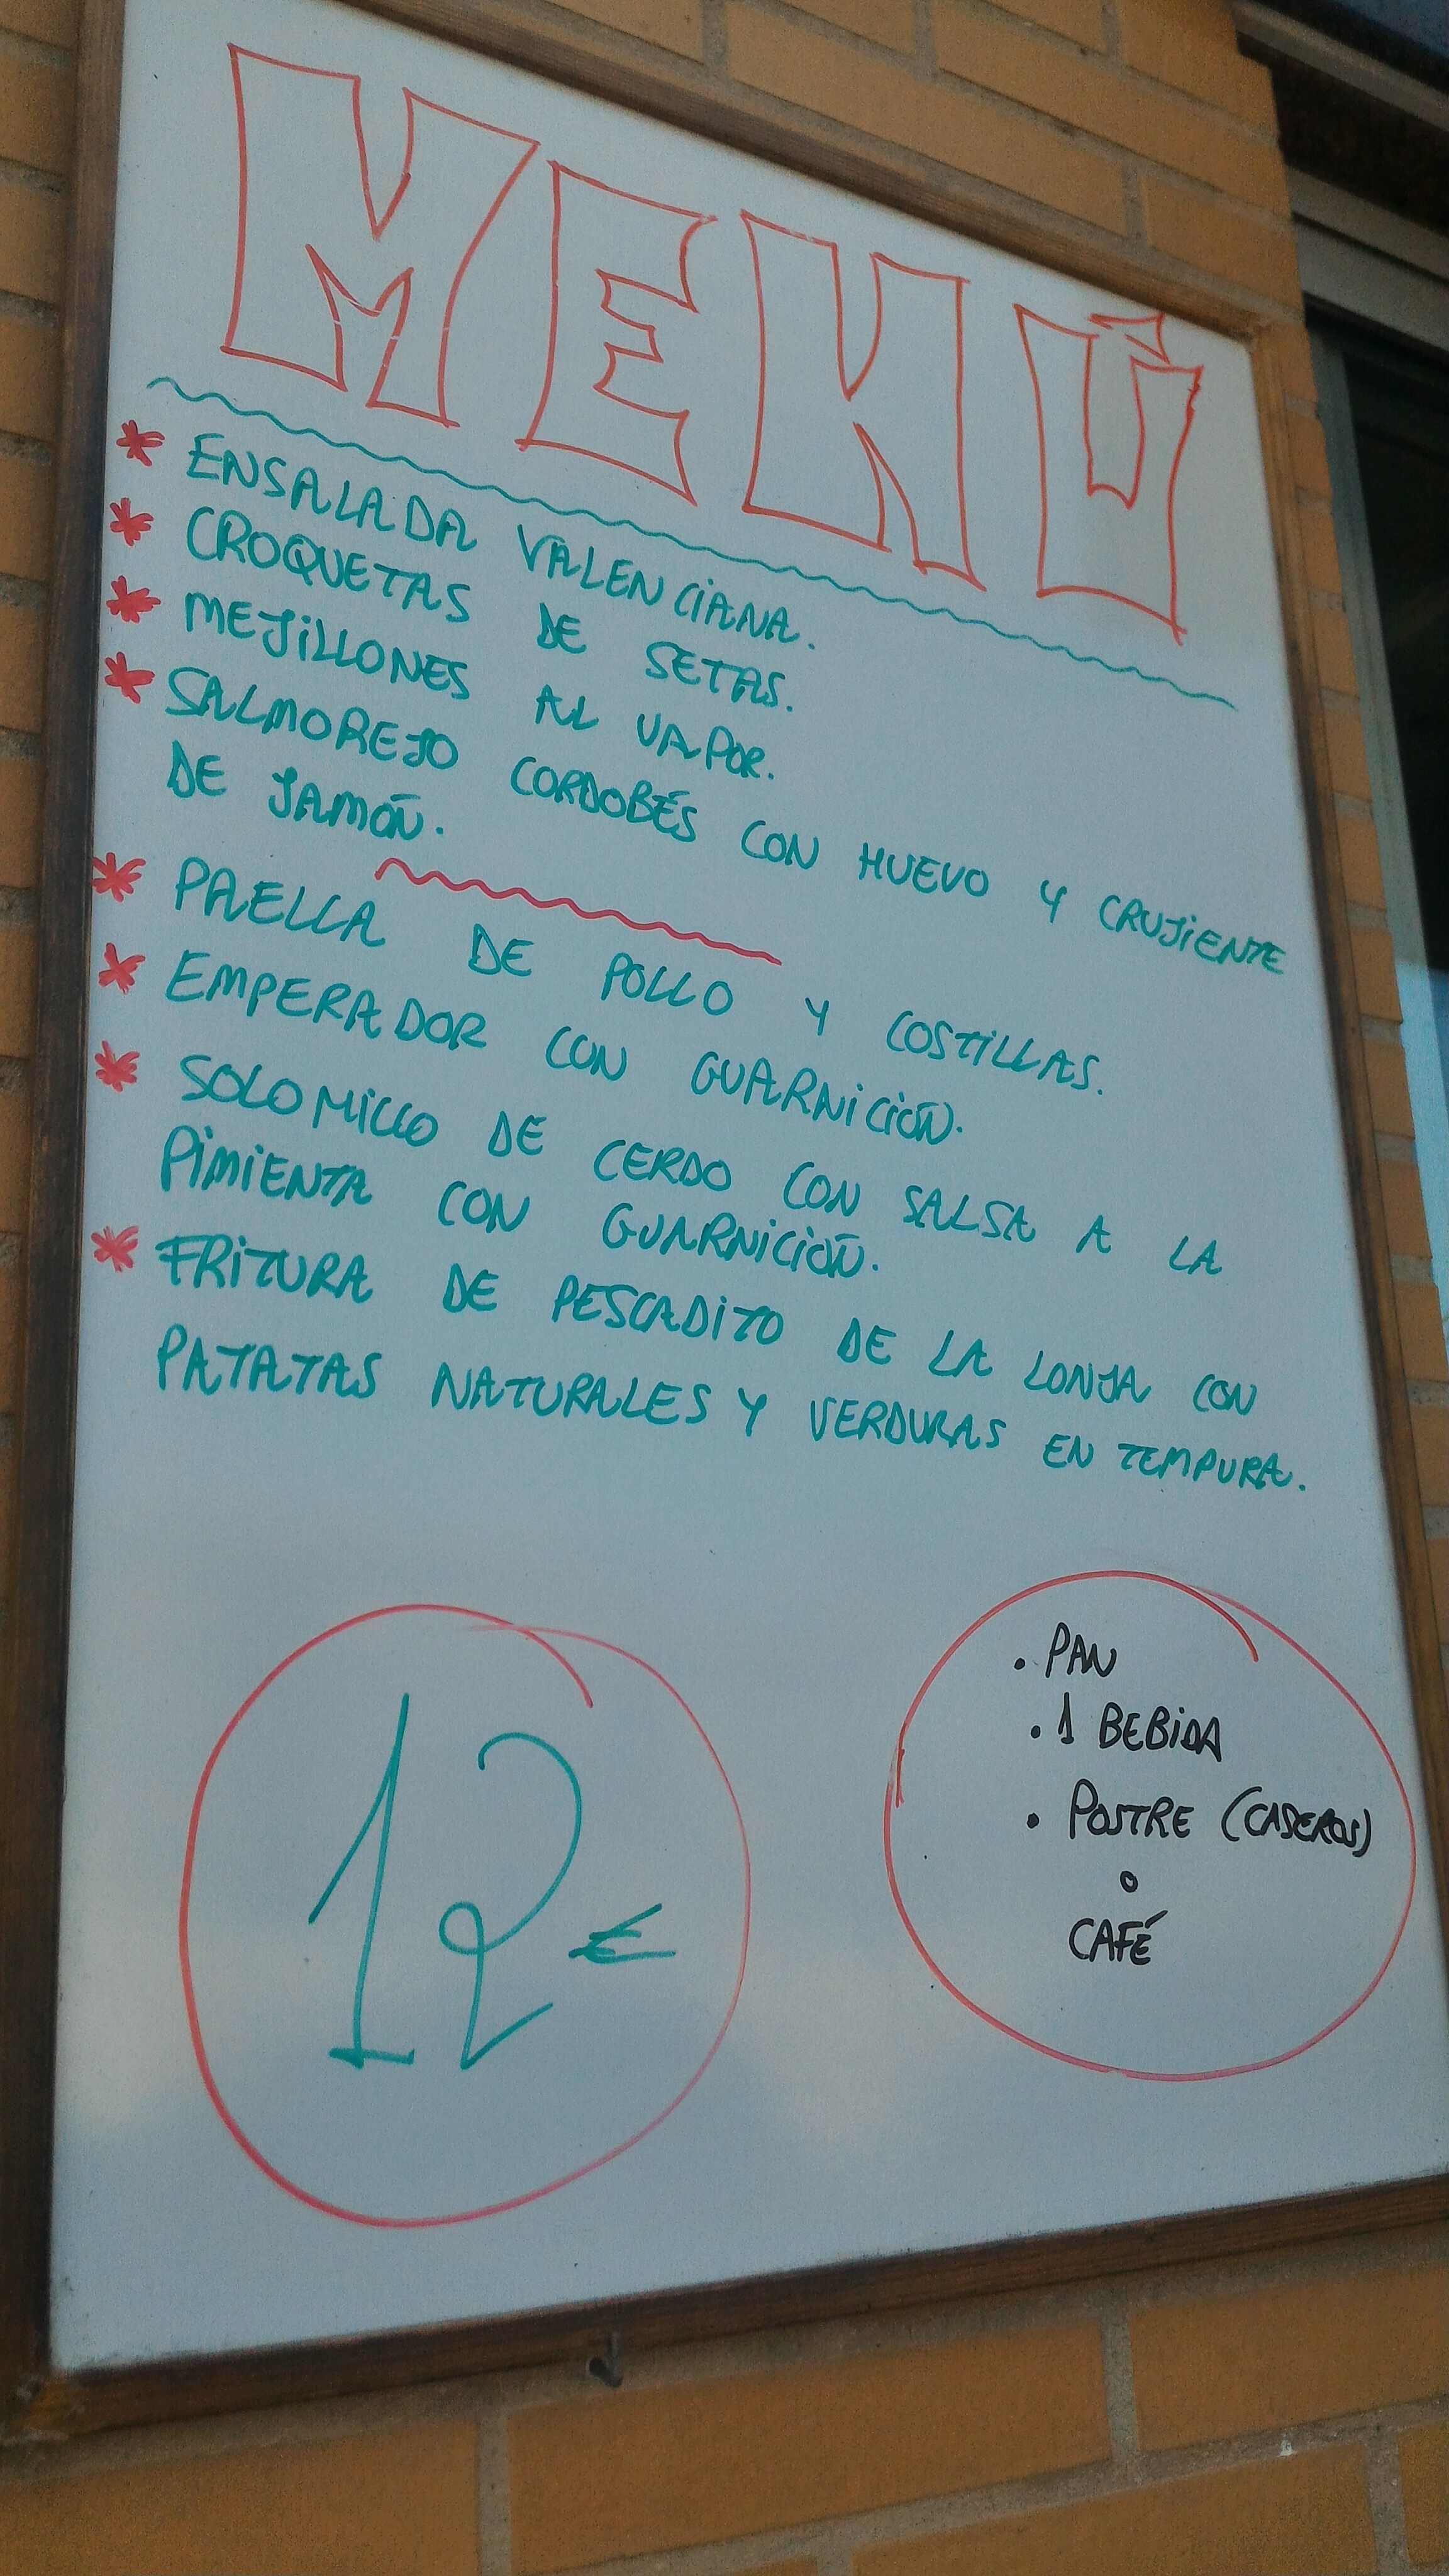 MENÚ
* ENSALADA VALENCIANA.
* CROQUETAS DE SETAS.
* MEJILLONES AL VAPOR.
* SALMOREJO CORDOBÉS CON HUEVO Y CRUJIENTE
DE JAMÓN.
* PAELLA DE POLLO Y COSTILLAS.
* EMPERADOR CON GUARNICIÓN.
* SOLOMILLO DE CERDO CON SALSA A LA
PIMIENTA CON GUARNICIÓN.
* FRITURA DE PESCADITO DE LA LONJA CON
PATATAS NATURALES Y VERDURAS EN TEMPURA.
12 €
. PAN
. 1 BEBIDA
. POSTRE (CASEROS)
o
CAFÉ